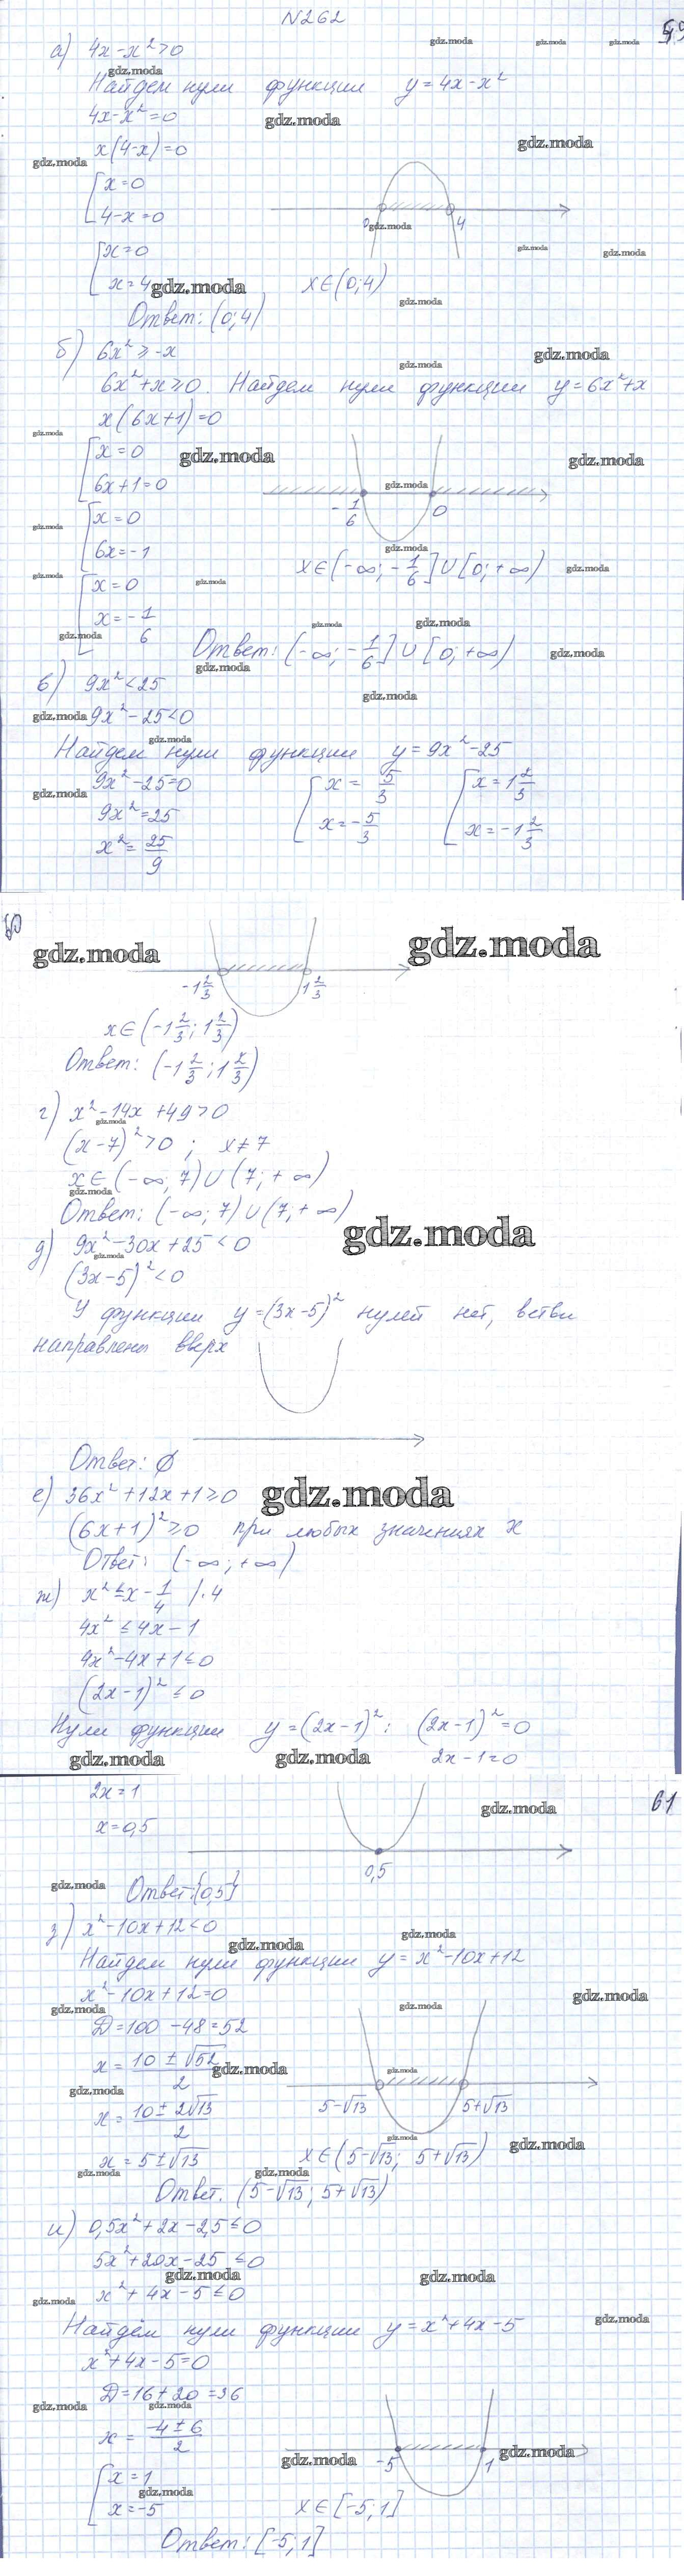 N262
59
а) 4x-x²>0
Найдем нули функции y=4x-x²
4x-x²=0
x(4-x)=0
x=0
4-x=0
0 4
x=0
x=4
x∈(0;4)
Ответ: (0;4)
б) 6x²≥-x
6x²+x≥0. Найдем нули функции y=6x²+x
x(6x+1)=0
x=0
6x+1=0
-1/6 0
x=0
6x=-1
x∈(-∞;-1/6]∪[0;+∞)
x=0
x=-1/6
Ответ: (-∞;-1/6]∪[0;+∞)
в) 9x²<25
9x²-25<0
Найдем нули функции y=9x²-25
9x²-25=0
9x²=25
x²=25/9
x=5/3
x=-5/3
x=1 2/3
x=-1 2/3
gdz.moda
gdz.moda
-1 2/3 1 2/3
x∈(-1 2/3;1 2/3)
Ответ: (-1 2/3;1 2/3)
г) x²-14x+49>0
(x-7)²>0; x≠7
x∈(-∞;7)∪(7;+∞)
Ответ: (-∞;7)∪(7;+∞)
gdz.moda
д) 9x²-30x+25<0
(3x-5)²<0
У функции y=(3x-5)² нулей нет, ветви
направлены вверх
Ответ: ∅
е) 36x²+12x+1≥0
gdz.moda
(6x+1)²≥0 при любых значениях x
Ответ: (-∞;+∞)
ж) x²≤x-1/4 |·4
4x²≤4x-1
4x²-4x+1≤0
(2x-1)²≤0
Нули функции y=(2x-1)²: (2x-1)²=0
2x-1=0
gdz.moda gdz.moda
61
2x=1
x=0,5
0,5
Ответ:{0,5}
з) x²-10x+12<0
Найдем нули функции y=x²-10x+12
x²-10x+12=0
D=100-48=52
x=(10±√52)/2
5-√13 5+√13
x=(10±2√13)/2
x=5±√13
x∈(5-√13; 5+√13)
Ответ. (5-√13; 5+√13)
и) 0,5x²+2x-2,5≤0
5x²+20x-25≤0
x²+4x-5≤0
Найдём нули функции y=x²+4x-5
x²+4x-5=0
D=16+20=36
x=(-4±6)/2
-5 1
x=1
x=-5
x∈[-5;1]
Ответ: [-5;1]